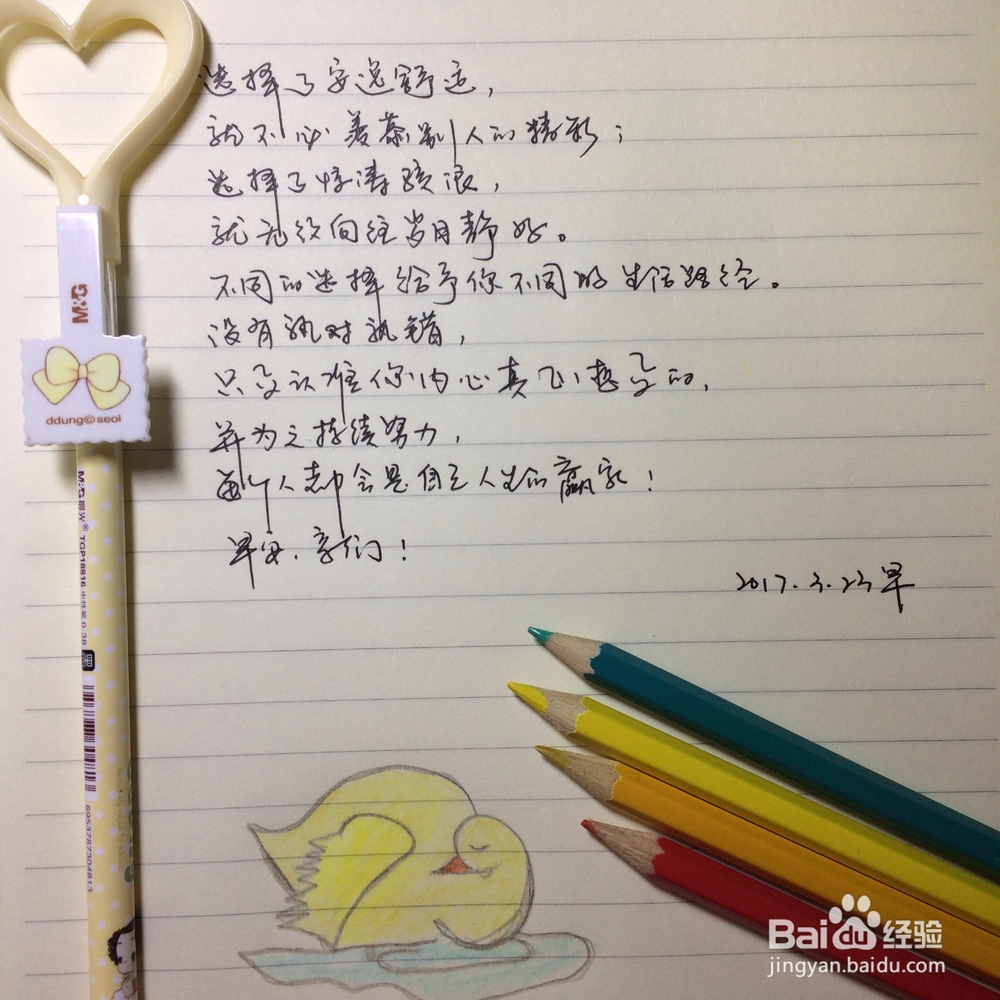 选择了安逸舒适，
就不必羡慕别人的精彩；
选择了惊涛骇浪，
就无须向往岁月静好。
不同的选择给予你不同的生活路径。
没有孰对孰错，
只要认准你内心真正想要的，
并为之持续努力，
每个人都会是自己人生的赢家！
早安，亲们！
2017.3.23早
M&G
ddung©seol
M&G晨光® TGP18816 中性笔 0.38
6953787304813
Baidu经验
jingyan.baidu.com